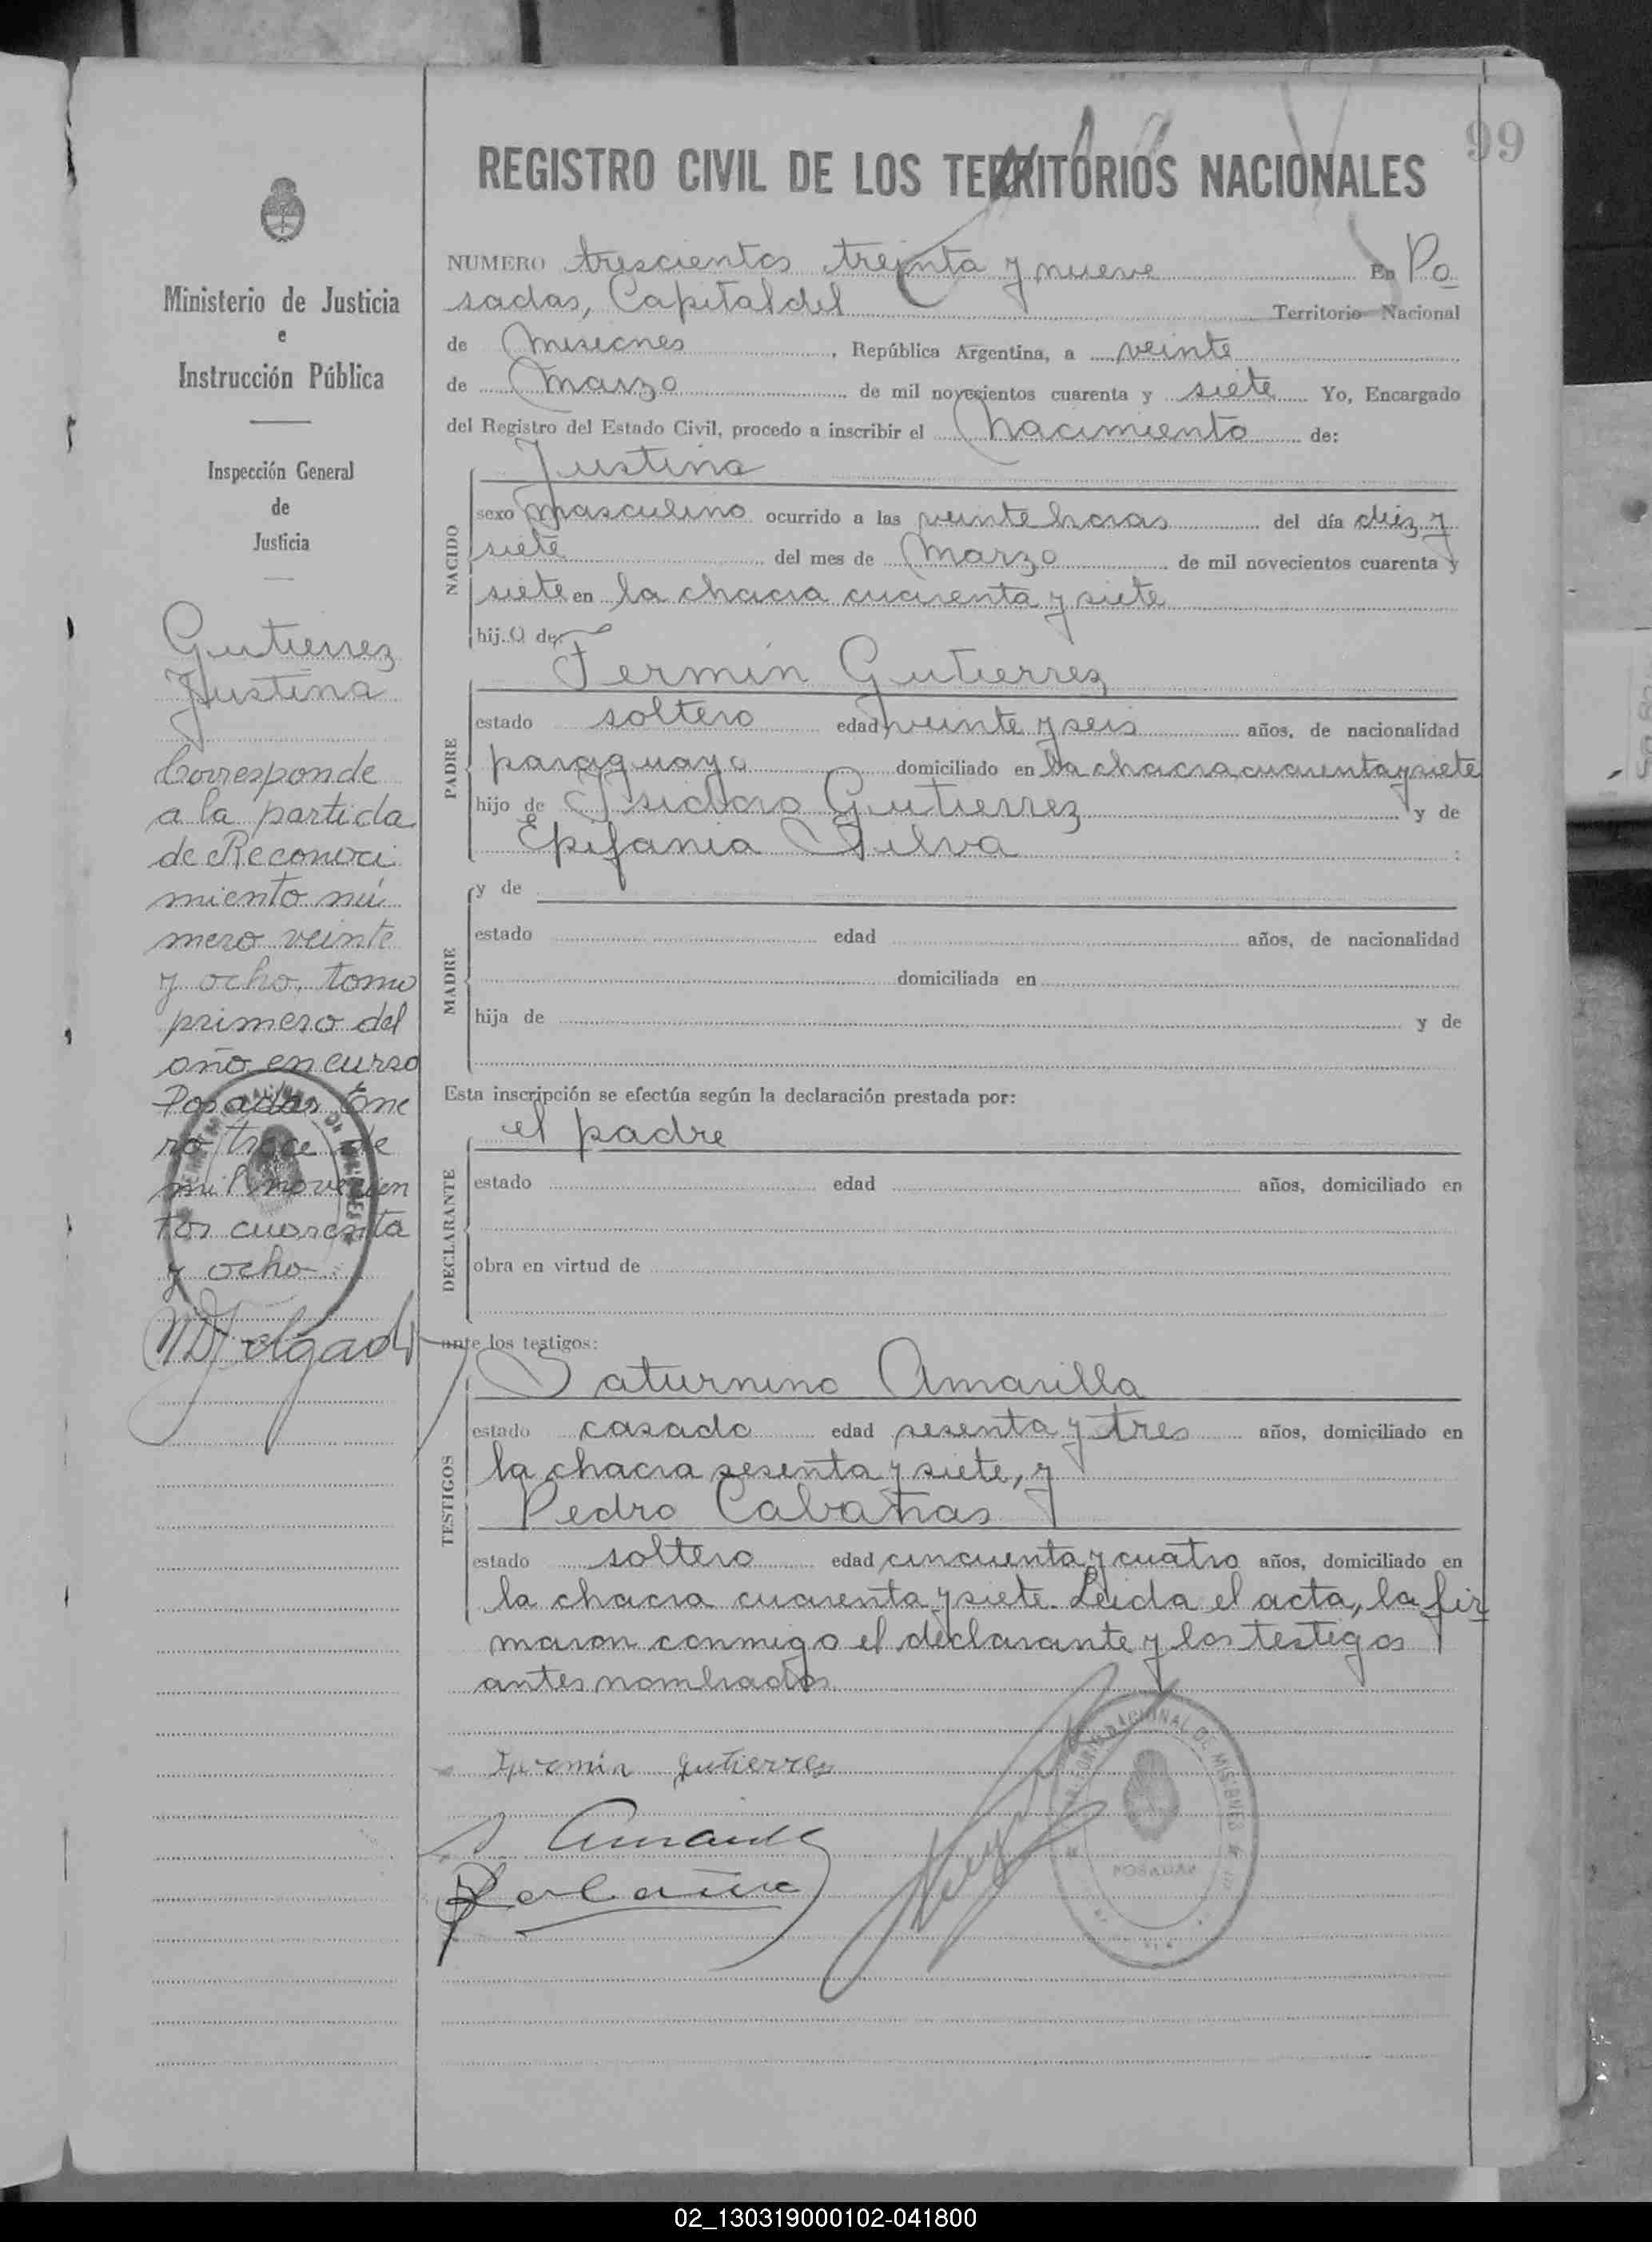 99
REGISTRO CIVIL DE LOS TERRITORIOS NACIONALES
Ministerio de Justicia
e
Instrucción Pública
Inspección General
de
Justicia
Gutierrez
Justina
Corresponde
a la partida
de Reconoci
miento nú
mero veinte
y ocho, tomo
primero del
año en curso
Posadas Ene
ro trece de
mil novecien
tos cuarenta
y ocho
MDelgado
NUMERO trescientos treinta y nueve En Po
sadas, Capital del Territorio Nacional
de Misiones, República Argentina, a veinte
de Marzo de mil novecientos cuarenta y siete Yo, Encargado
del Registro del Estado Civil, procedo a inscribir el Nacimiento de:
Justina
NACIDO
sexo masculino ocurrido a las veinte horas del día diez y
siete del mes de Marzo de mil novecientos cuarenta y
siete en la chacra cuarenta y siete
hij.o de:
Fermin Gutierrez
PADRE
estado soltero edad veinte y seis años, de nacionalidad
paraguaya domiciliado en la chacra cuarenta y siete
hijo de Isidoro Gutierrez y de
Epifania Silva :
MADRE
y de
estado edad años, de nacionalidad
domiciliada en
hija de y de
Esta inscripción se efectúa según la declaración prestada por:
el padre
DECLARANTE
estado edad años, domiciliado en
obra en virtud de
ante los testigos:
Saturnino Amarilla
TESTIGOS
estado casado edad sesenta y tres años, domiciliado en
la chacra sesenta y siete, y
Pedro Cabañas
estado soltero edad cincuenta y cuatro años, domiciliado en
la chacra cuarenta y siete. Leida el acta, la fir
maron conmigo el declarante y los testigos
antes nombrados.
Fermin Gutierrez
TERRITORIO NACIONAL DE MISIONES
POSADAS
02_130319000102-041800